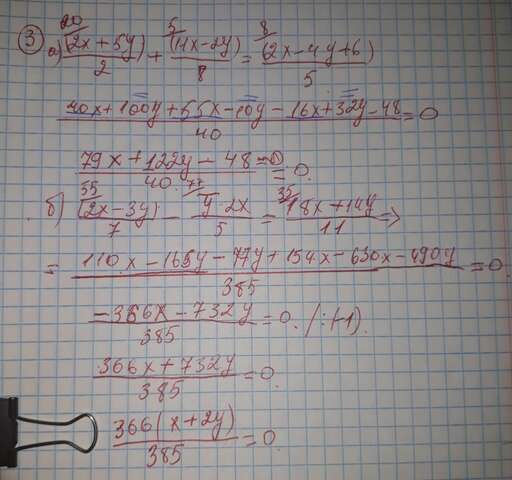 ③ а) 20/(2x+5y)/2 + 5/(11x-2y)/8 = 8/(2x-4y+6)/5
(40x+100y+55x-10y-16x+32y-48)/40 = 0
(79x+122y-48=0)/40. = 0.
б) 55/(2x-3y)/7 - 77/(y-2x)/5 = 35/(18x+14y)/11 =>
= (110x-165y-77y+154x-630x-490y)/385 = 0
(-366x-732y)/385 = 0. /:(-1).
(366x+732y)/385 = 0.
366(x+2y)/385 = 0.